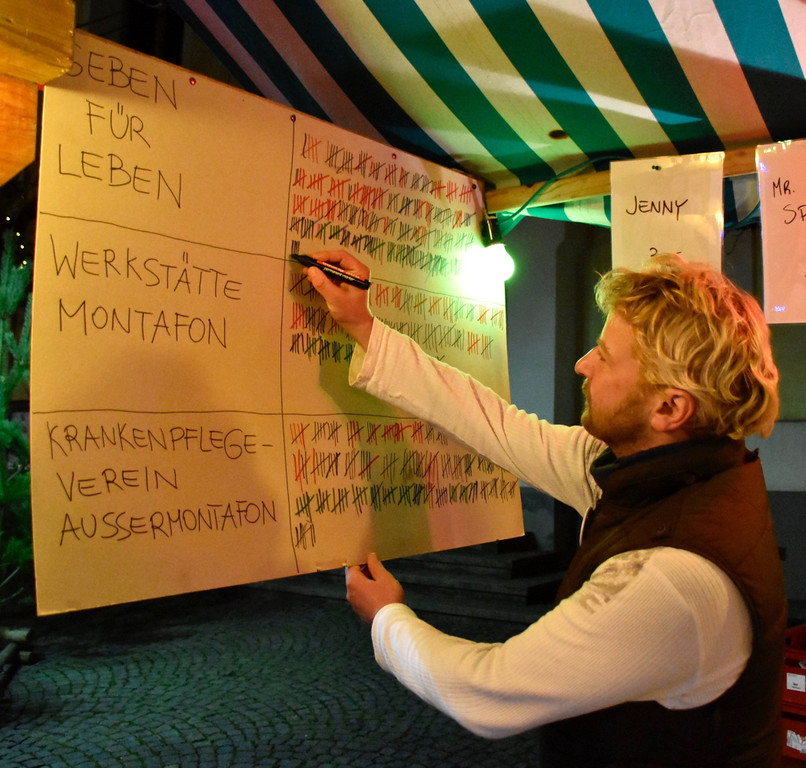 GEBEN
FÜR
LEBEN
WERKSTÄTTE
MONTAFON
KRANKENPFLEGE-
VEREIN
AUSSERMONTAFON
JENNY
MR.